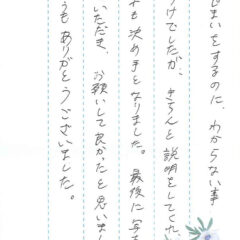 じまいをするのに、わからない事
うけでしたが、きちんと説明をしてくれ
れも決め手となりました。最後に写
いただき、お願いして良かったと思いまし
うもありがとうございました。